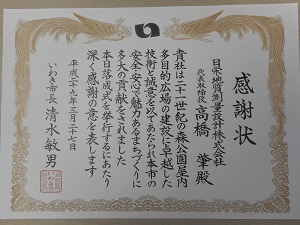 感謝状
日栄地質測量設計株式会社
代表取締役 高橋 肇 殿
貴社は二十一世紀の森公園屋内
多目的広場の建設に卓越した
技術と誠意を以てあたられ本市の
安全・安心で魅力あるまちづくりに
多大の貢献をされました
本日落成式を挙行するにあたり
深く感謝の意を表します
平成二十九年三月二十七日
いわき市長 清水敏男